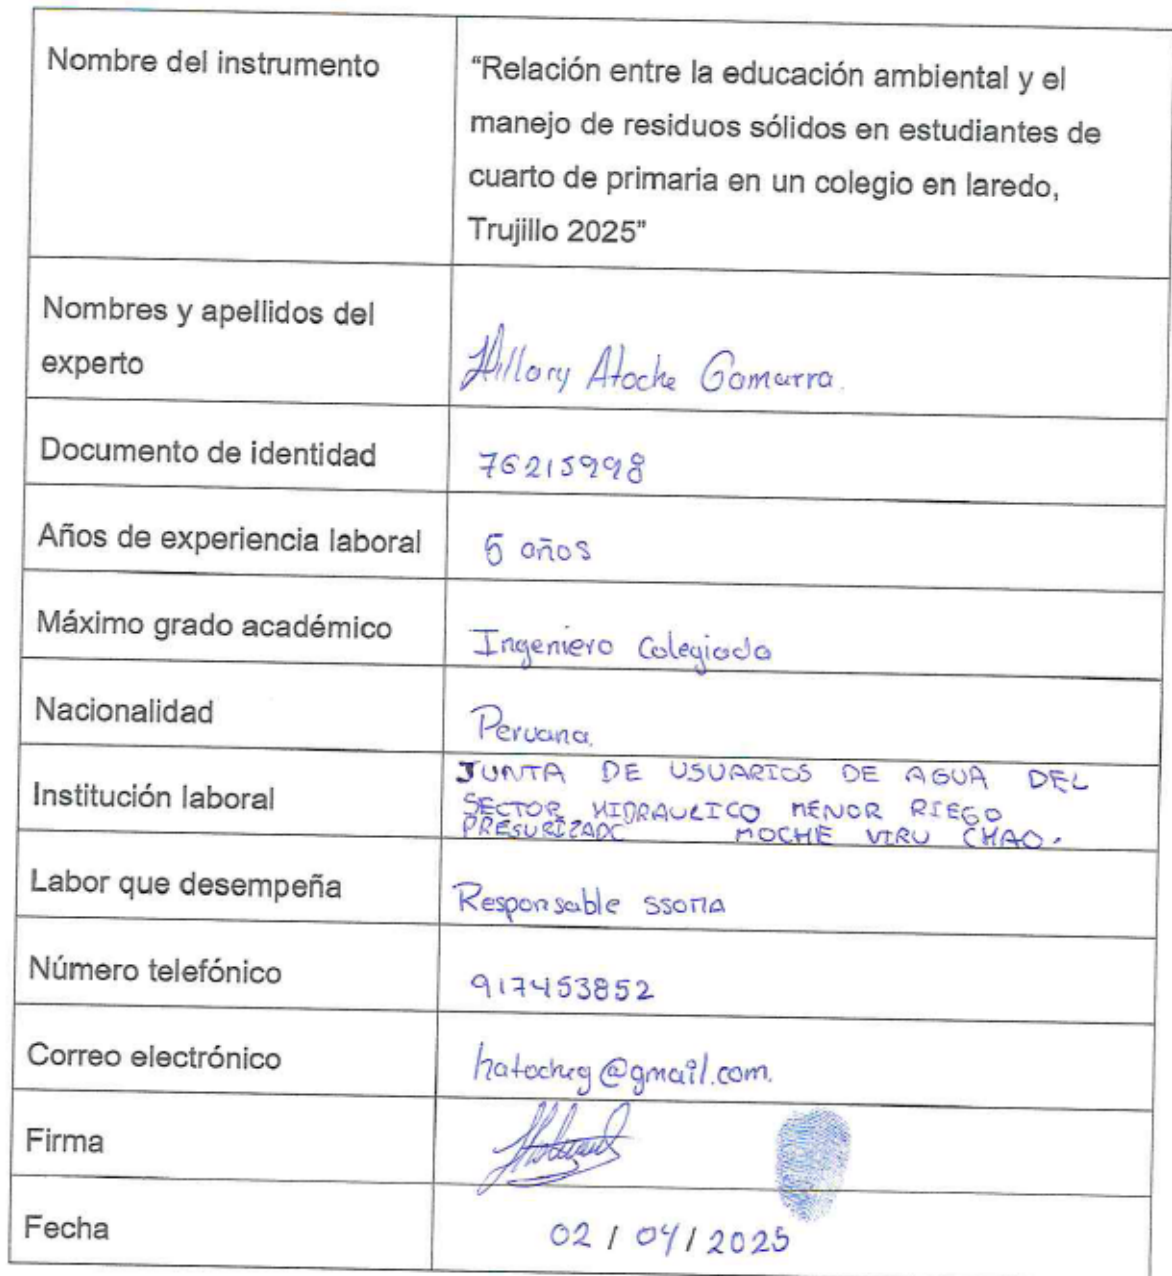 Nombre del instrumento
"Relación entre la educación ambiental y el
manejo de residuos sólidos en estudiantes de
cuarto de primaria en un colegio en laredo,
Trujillo 2025"
Nombres y apellidos del
experto
Hillary Atoche Gamarra.
Documento de identidad
76215998
Años de experiencia laboral
5 años
Máximo grado académico
Ingeniero Colegiado
Nacionalidad
Peruana.
Institución laboral
JUNTA DE USUARIOS DE AGUA DEL
SECTOR HIDRAULICO MENOR RIEGO
PRESURIZADO MOCHE VIRU CHAO.
Labor que desempeña
Responsable SSOMA
Número telefónico
917453852
Correo electrónico
hatocheg@gmail.com.
Firma
Fecha
02 / 04 / 2025